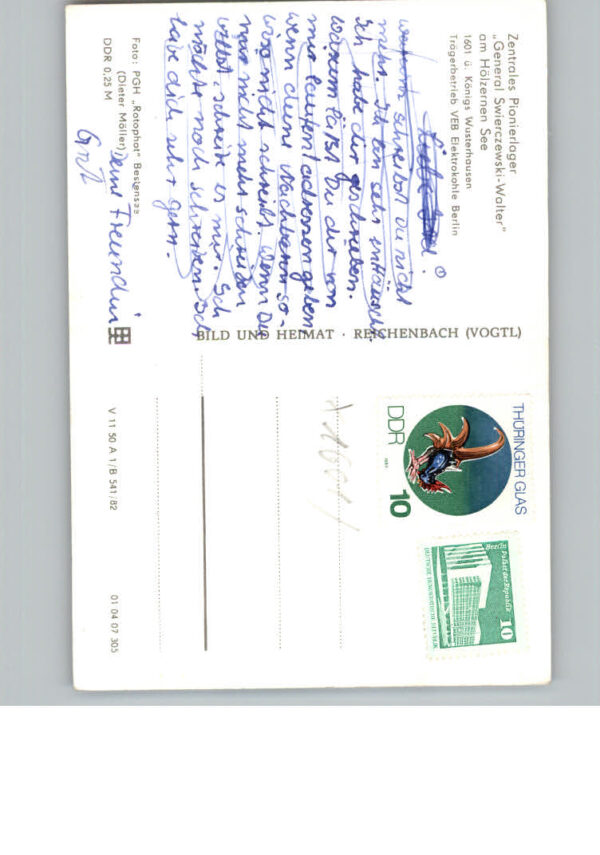 Zentrales Pionierlager
„General Swierczewski-Walter"
am Hölzernen See
1601 ü. Königs Wusterhausen
Trägerbetrieb VEB Elektrokohle Berlin
Liebe !
warum schreibst Du nicht
mehr. Ich bin sehr enttäuscht
Ich habe dir geschrieben.
Warum läßt Du dir von
mir Adressen geben
wenn deine so-
wieso nicht schreibst. Wenn Du
mir nicht mehr schreiben
willst, schreib es mir. Ich
möchte noch schreiben. Ich
habe dich sehr gern.
Deine Freundin
Foto: PGH „Rotophot" Bestensee
(Dieter Möller)
DDR 0,25 M
BILD UND HEIMAT · REICHENBACH (VOGTL)
V 11 50 A 1/B 541/82
01 04 07 305
1601
THÜRINGER GLAS
DDR
10
Berlin Palast der Republik
10
DEUTSCHE DEMOKRATISCHE REPUBLIK